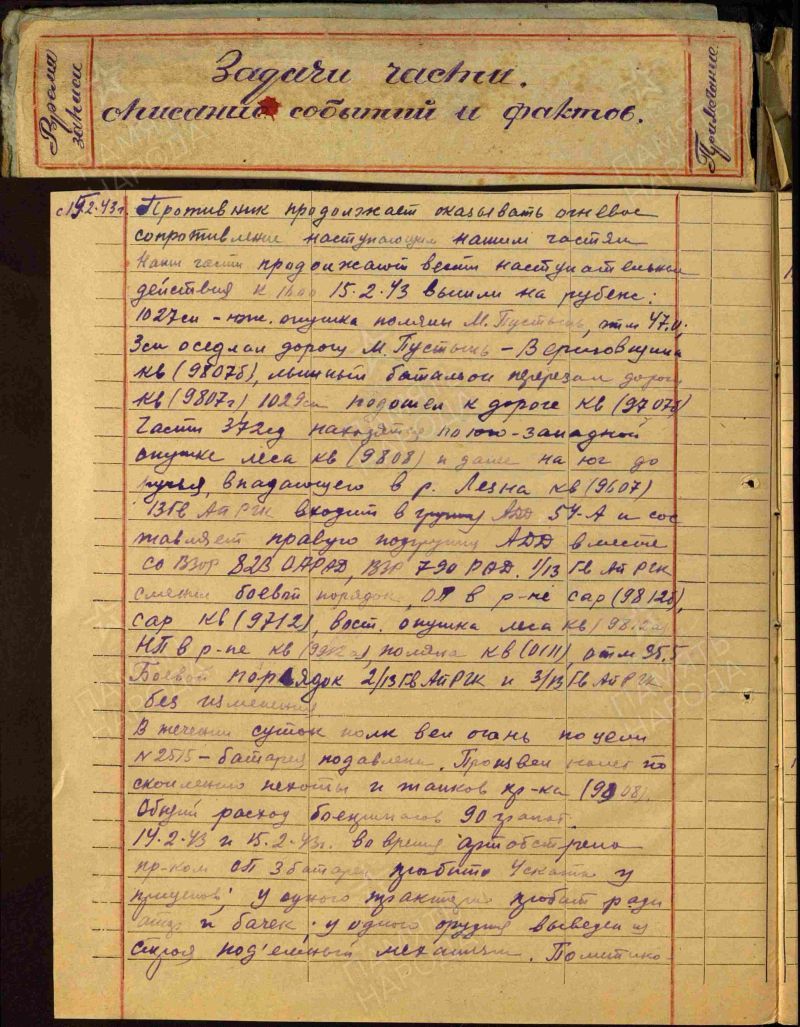 Время
записи
Задачи части.
описание событий и фактов.
Примечание
с 15.2.43г
Противник продолжает оказывать огневое
сопротивление наступающим нашим частям
Наши части продолжают вести наступательные
действия к 1600 15.2.43 вышли на рубеж:
1027сп - юж. опушка поляны М. Пустынь, отм 47.0;
3сп оседлал дорогу М. Пустынь -
кв (9807б), лыжный батальон перерезал дорогу
кв (9807г), 1029сп подошел к дороге кв (9707б)
Части 372сд находятся по юго-западной
опушке леса кв (9808) и далее на юг до
ручья, впадающего в р. Лезна кв (9607)
13Гв АпРГК входит в группу АДД 54-А и сос
тавляет правую подгруппу АДД вместе
со ВЗОР 828 ОАРАД, ВЗР 790 РАД. 1/13 Гв Ап РГК
сменил боевой порядок, ОП в р-не сар (9812б),
сар кв (9712), вост. опушка леса кв (9812а)
НП в р-не кв поляна кв (0111), отм 35,5
Боевой порядок 2/13 Гв АпРГК и 3/13 Гв АпРГК
без изменения
В течении суток полк вел огонь по цели
N 2515 - батарея подавлена. Произвел налет по
скоплению пехоты и танков пр-ка (9808).
Общий расход боеприпасов 90 гранат.
14.2.43 и 15.2.43г. во время артобстрела
пр-ком ОП 3 батареи пробито 4 ската у
прицепов; у одного трактора пробит ради
атор и бачек; у одного орудия выведен из
строя под'емный механизм. Политико-